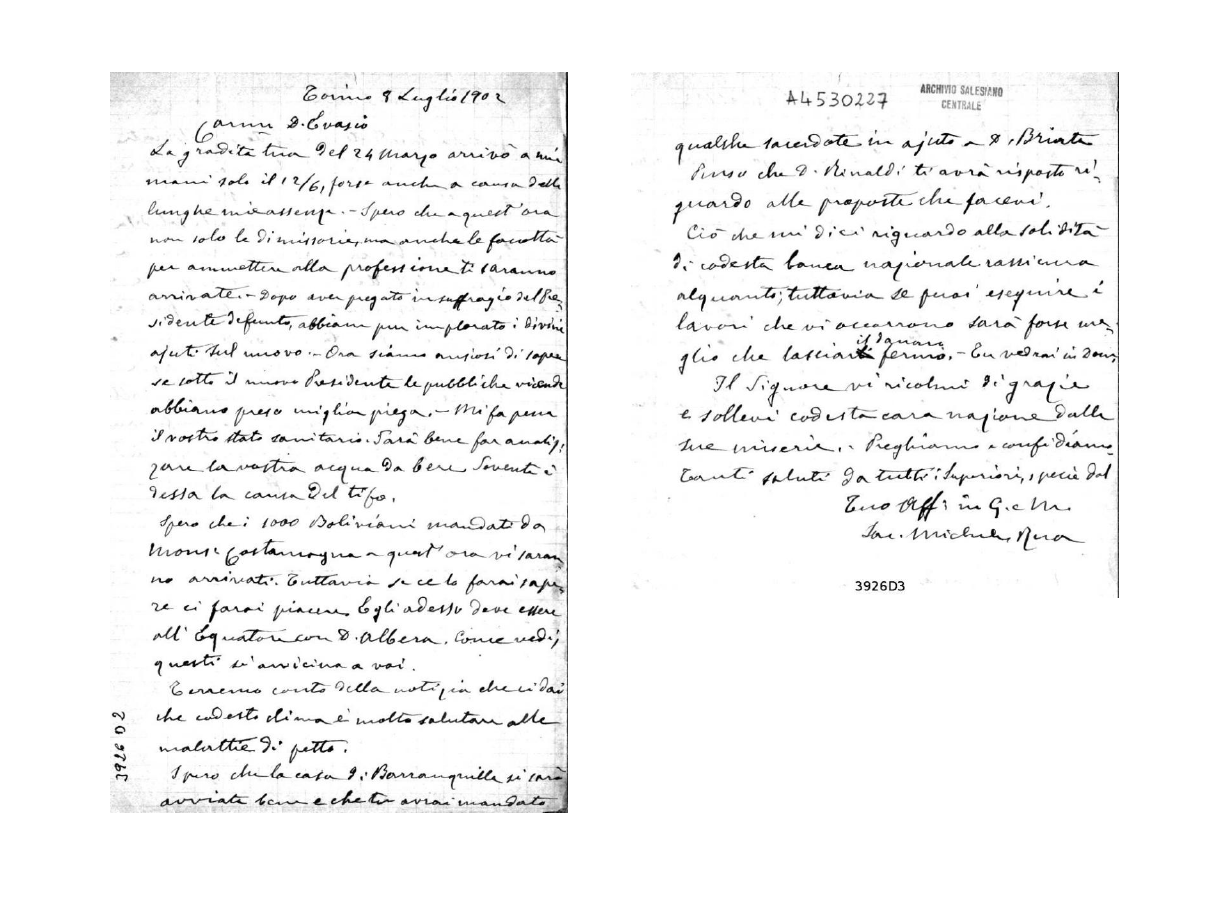 Torino 8 Luglio 1902
Carmo D. Evasio
La gradita tua del 24 Marzo arrivò a mie
mani solo il 12/6, forse anche a causa delle
lunghe mie assenze. - Spero che a quest'ora
non solo le dimissorie, ma anche le facoltà
per ammettere alla professione ti saranno
arrivate. - Dopo aver pregato in suffragio del Pre-
sidente defunto, abbiam pur implorato i divini
ajuti sul nuovo. - Ora siamo ansiosi di sapere
se sotto il nuovo Presidente le pubbliche vicende
abbiano preso miglia piega. - Mi fa pena
il vostro stato sanitario. Sarà bene far analiz-
zare la vostra acqua da bere. Sovente è
dessa la causa del tifo.
Spero che i 1000 Boliviani mandati da
Monsr Costamagna a quest'ora vi saran
no arrivati. Tuttavia se ce lo farai sape-
re ci farai piacere. Egli adesso deve essere
all'Equatore con D. Albera. Come vedi,
questi si avvicina a voi.
Terremo conto della notizia che ci dai
che codesto clima è molto salutare alle
malattie di petto.
Spero che la casa di Barranquilla si sarà
avviata bene e che tu avrai mandato
3926D2
A4530227
ARCHIVIO SALESIANO
CENTRALE
qualche sacerdote in ajuto a D. Briata
Penso che D. Rinaldi ti avrà risposto ri-
guardo alle proposte che facevi.
Ciò che mi dici riguardo alla solidità
di codesta banca nazionale rassicura
alquanto; tuttavia se puoi eseguire i
lavori che vi occorrono sarà forse me-
glio che lasciar il danaro fermo. - Tu vedrai in Dno.
Il Signore vi ricolmi di grazie
e sollevi codesta cara nazione dalle
sue miserie. - Preghiamo e confidiamo
Tanti saluti da tutti i Superiori, specie dal
Tuo Aff. in G. e M.
Sac. Michele Rua
3926D3